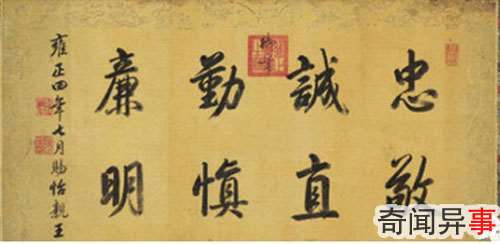 忠敬
誠直
勤慎
廉明
雍正四年七月賜怡親王
奇闻异事